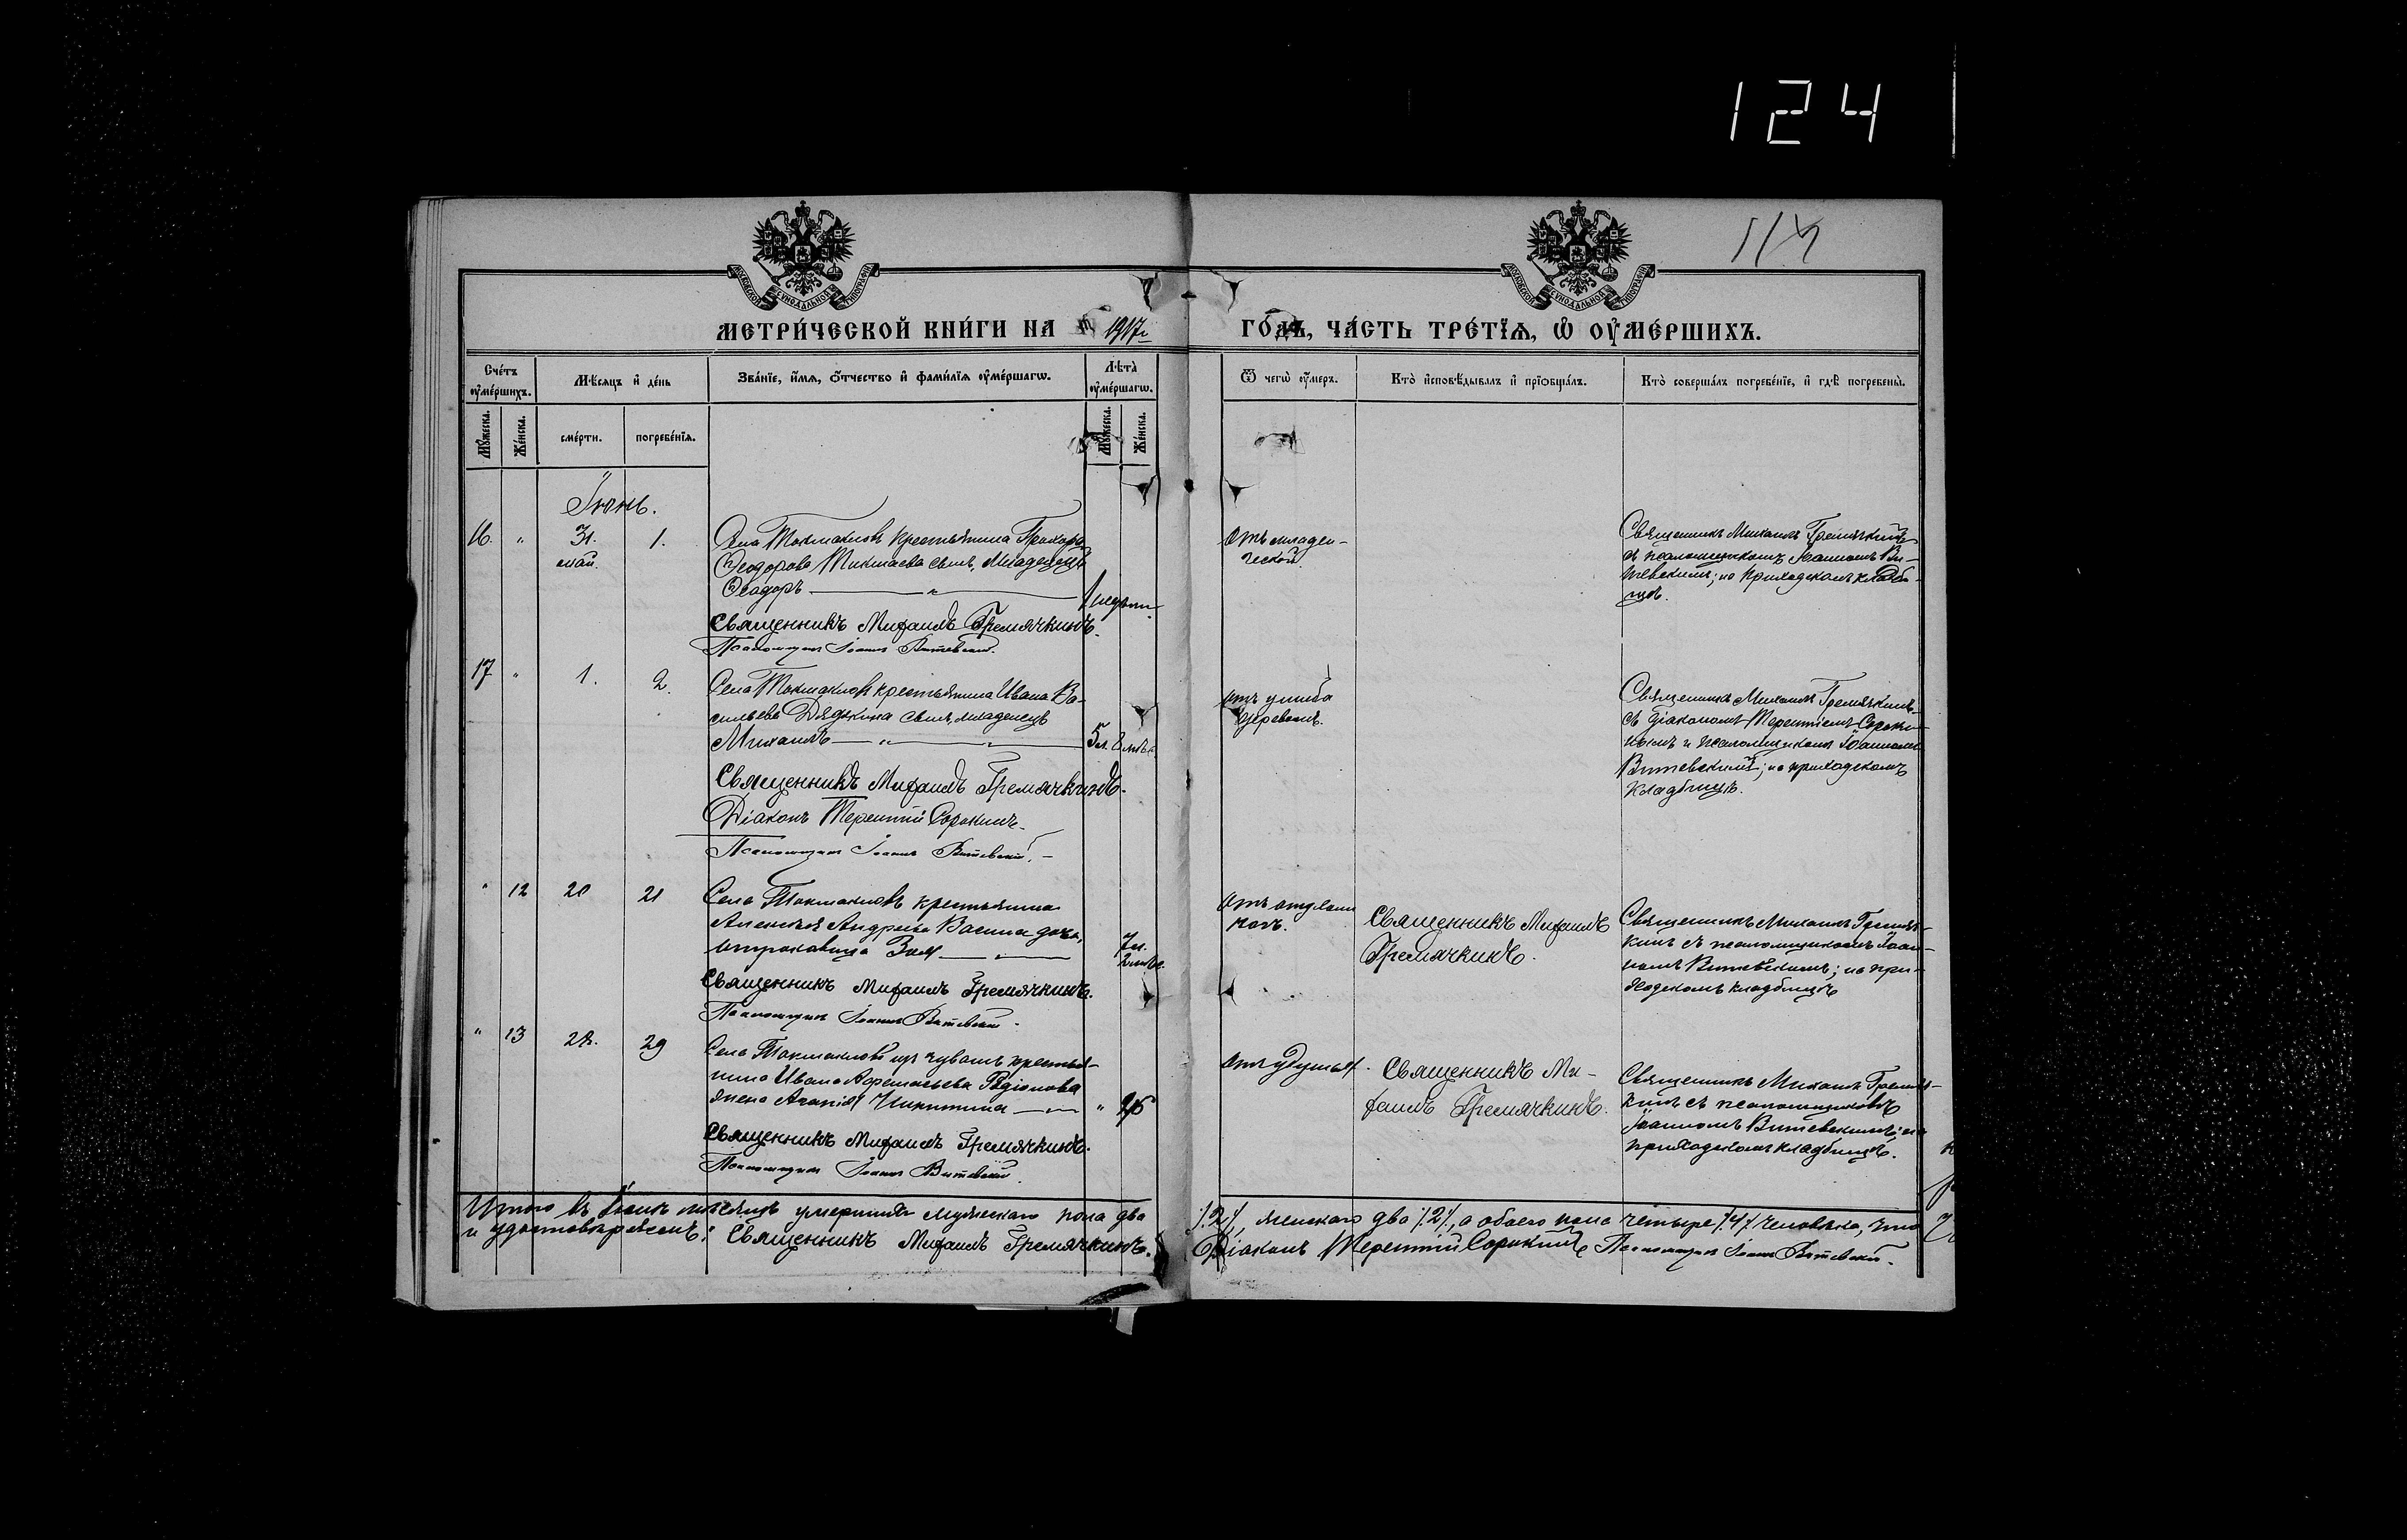 124
114
МОСКОВСКОЙ СѴНОДАЛЬНОЙ ТИПОГРАФІИ
МОСКОВСКОЙ СѴНОДАЛЬНОЙ ТИПОГРАФІИ
МЕТРИ́ЧЕСКОЙ КНИ́ГИ НА 1917 г.
ГО́ДЪ, ЧА́СТЬ ТРЕ́ТЇѦ, Ѡ ОУМЕ́РШИХЪ.
Сче́тъ оумершихъ.
Мѣсяцъ и де́нь
Зва́нїе, и́мѧ, о́тчество и фами́лїѧ оуме́ршагѡ.
Лѣта̀ оуме́ршагѡ.
Ѿ чегѡ̀ оу́меръ.
Кто̀ исповѣ́дывалъ и прїѡбща́лъ.
Кто̀ соверша́лъ погребе́нїе, и гдѣ̀ погребены̀.
Мꙋ́жеска.
Же́нска.
сме́рти.
погребе́нїѧ.
Мꙋ́жеска.
Же́нска.
Іюнь.
16. " 31. мая. 1.
Села Токмаклов крестьянина Григорія
Ѳеодорова Токмаева сынъ, младенецъ
Ѳеодоръ — " —
1 недѣли
Священникъ Михаилъ Гремячкинъ.
Псаломщикъ Іоаннъ Витевскій.
отъ младен-
ческой.
Священникъ Михаилъ Гремячкинъ
съ псаломщикомъ Іоанномъ Ви-
тевскимъ; на приходскомъ кладби-
щѣ.
17 " 1. 2.
Села Токмаклов крестьянина Ивана Ва-
сильева Дядькина сынъ, младенецъ
Михаилъ — " — " —
5 л. 8 мѣс.
Священникъ Михаилъ Гремячкинъ.
Діаконъ Терентій Сорокинъ.
Псаломщикъ Іоаннъ Витевскій. —
отъ ушиба
деревомъ.
Священникъ Михаилъ Гремячкинъ
съ діакономъ Терентіемъ Сороки-
нымъ и псаломщикомъ Іоанномъ
Витевскимъ; на приходскомъ
кладбищѣ.
" 12 20 21
Села Токмаклов крестьянина
Алексѣя Андреева Васина дочь,
отроковица Зоя — " —
7 л.
2 мѣс.
Священникъ Михаилъ Гремячкинъ.
Псаломщикъ Іоаннъ Витевскій.
Священникъ Михаилъ
Гремячкинъ.
Священникъ Михаилъ Гремяч-
кинъ съ псаломщикомъ Іоан-
номъ Витевскимъ; на при-
ходскомъ кладбищѣ
" 13 28. 29
Села Токмаклов изъ чувашъ крестья-
нина Ивана Аѳанасьева Родіонова
жена Агапія Никитина — " —
"
Священникъ Михаилъ Гремячкинъ.
Псаломщикъ Іоаннъ Витевскій.
отъ удушья.
Священникъ Ми-
хаилъ Гремячкинъ.
Священникъ Михаилъ Гремяч-
кинъ съ псаломщикомъ
Іоанномъ Витевскимъ; на
приходскомъ кладбищѣ.
Итого въ Іюнѣ мѣсяцѣ умершихъ мужескаго пола два
/.2./, женскаго два /.2./, а обоего пола четыре /.4./ человѣка, что
и удостовѣряемъ: Священникъ Михаилъ Гремячкинъ.
Діаконъ Терентій Сорокинъ Псаломщикъ Іоаннъ Витевскій.